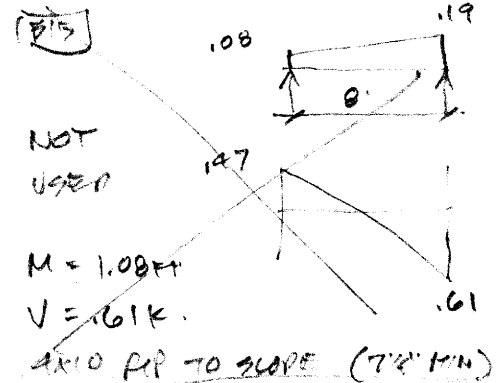 B15
.08 .19
8'
NOT
USED
.47
M = 1.08k-ft
V = .61k.
.61
4x10 RIP TO SLOPE (7¼" MIN)